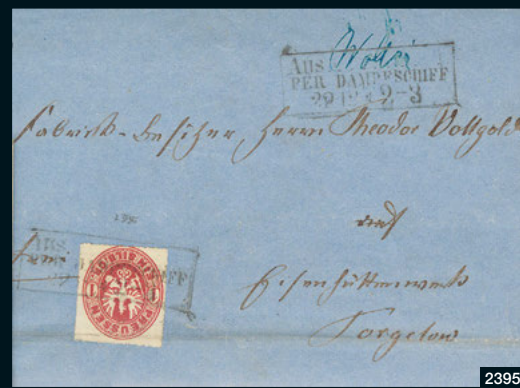 Aus Wollin
PER DAMPFSCHIFF
2-3
Fabrik-Besitzer Herrn Theodor Vollgold
auf
Eisenhüttenwerk
Torgelow
Aus
FF
EIN SILBERGR.
1 1
PREUSSEN
2395